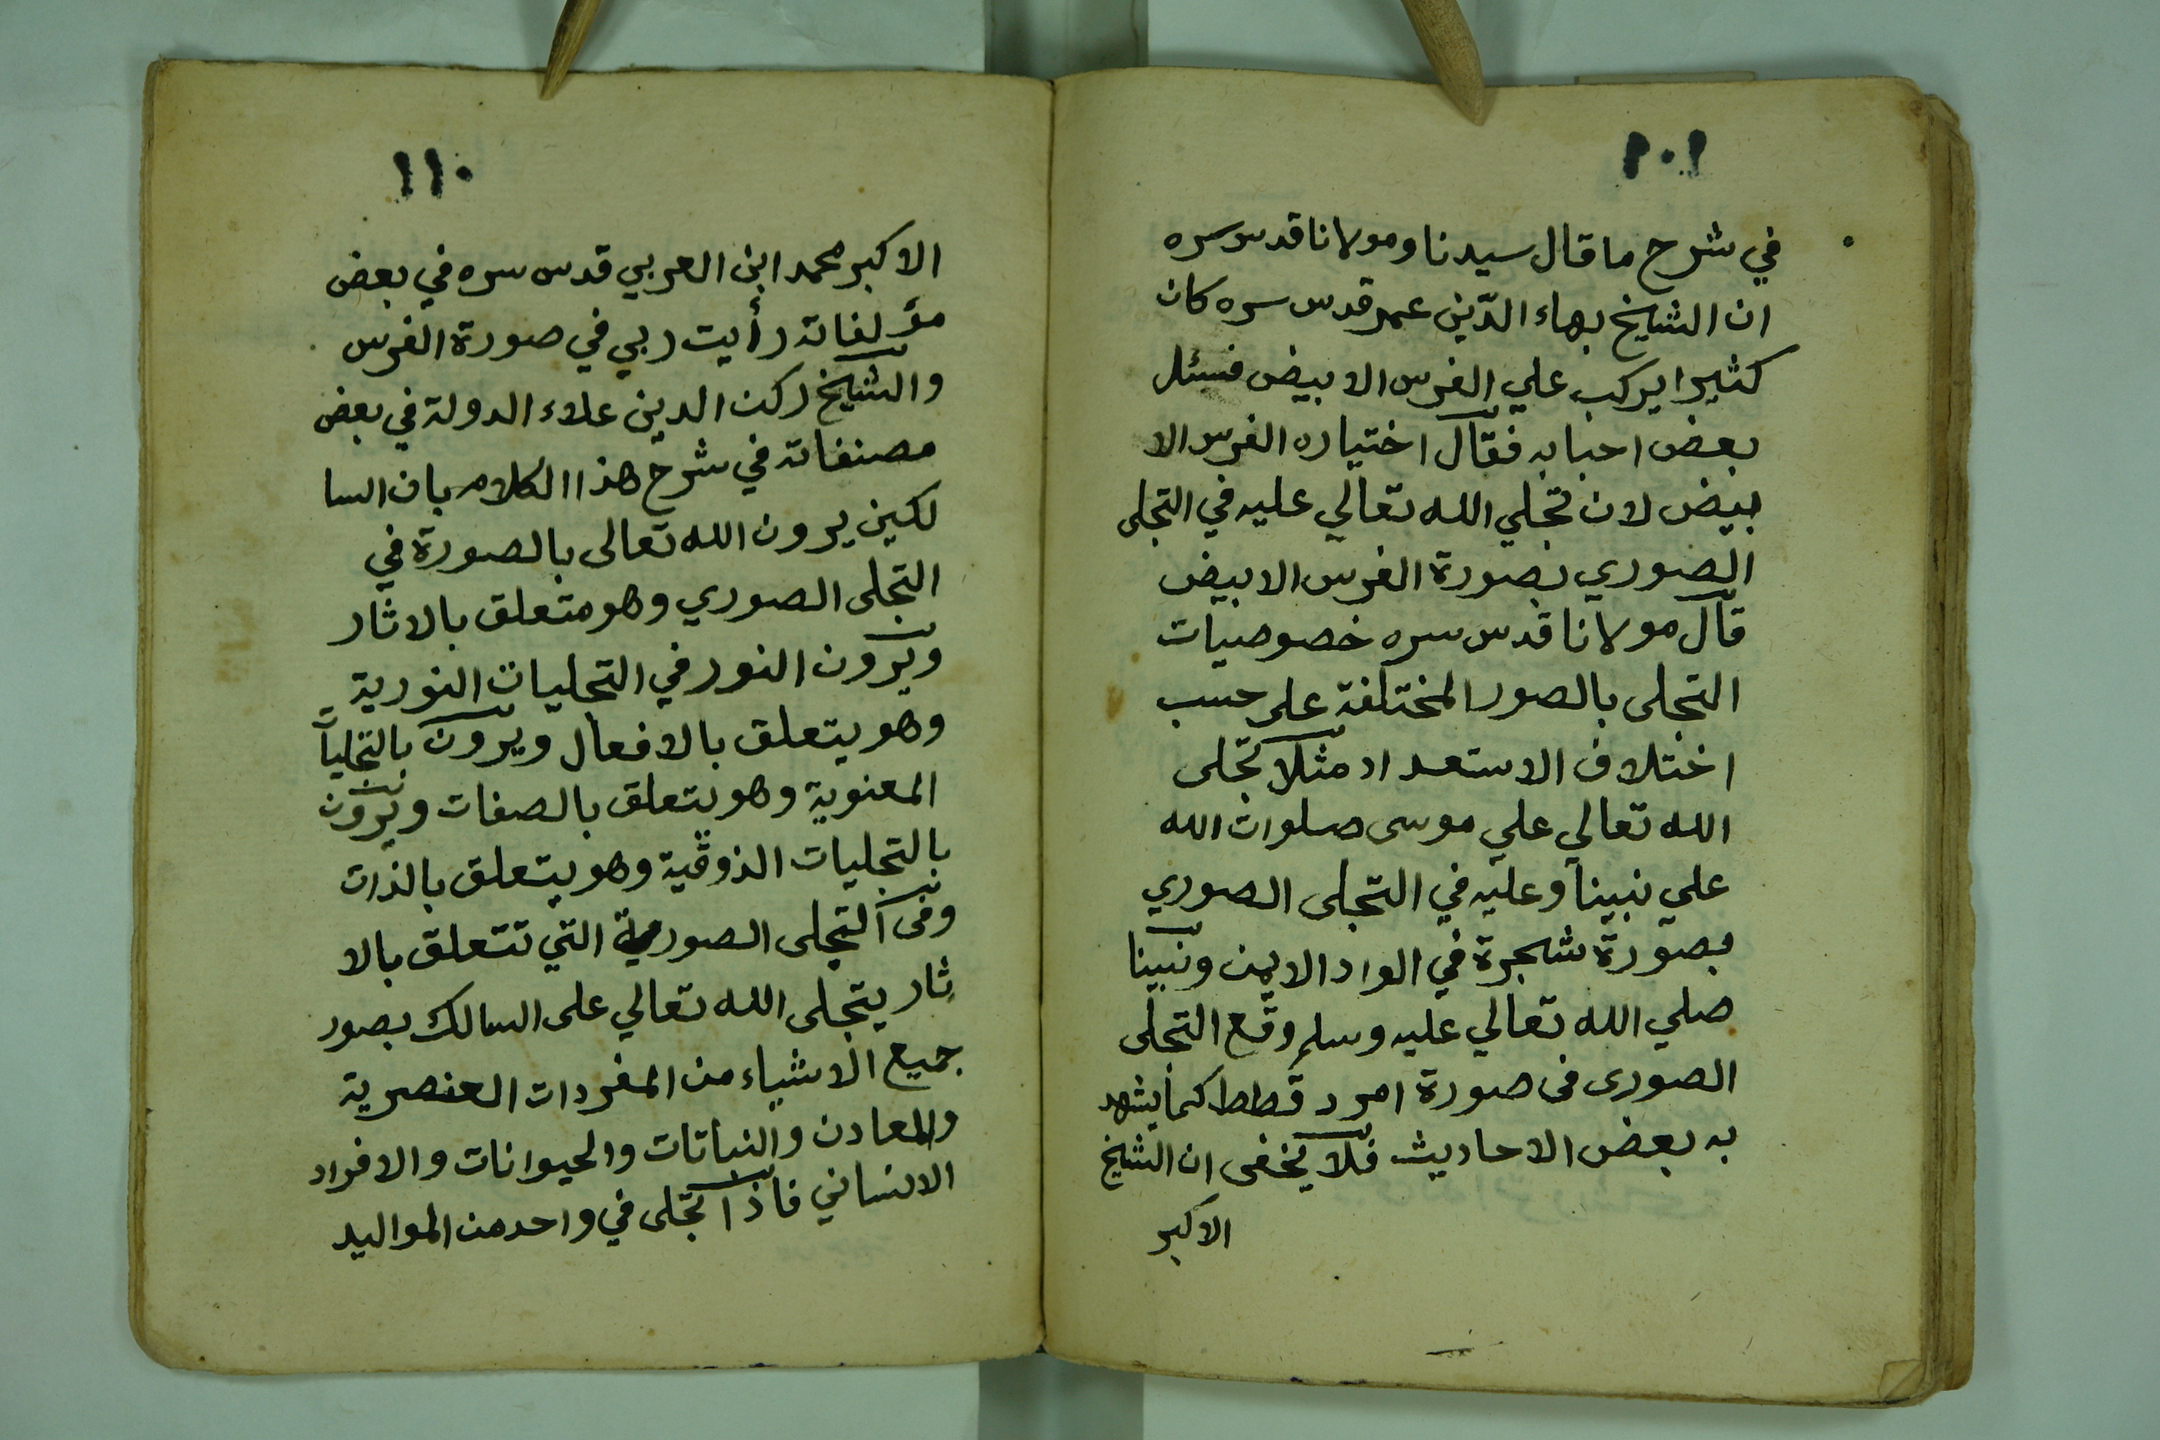 ١٠٩
في شرح ما قال سيدنا ومولانا قدس سره
ان الشيخ بهاء الدّين عمر قدس سره كان
كثيرا يركب علي الفرس الابيض فسئل
بعض احبابه فقال اختياره الفرس الا
بيض لان تجلي الله تعالي عليه في التجلى
الصوري بصورة الفرس الابيض
قال مولانا قدس سره خصوصيات
التجلى بالصور المختلفة على حسب
اختلاف الاستعداد مثلا تجلى
الله تعالي علي موسى صلوات الله
علي نبينا وعليه في التجلى الصوري
بصورة شجرة في الواد الايمن ونبينا
صلي الله تعالي عليه وسلم وقع التجلى
الصورى فى صورة امرد قطط كما يشهد
به بعض الاحاديث فلا يخفى ان الشيخ
الاكبر
١١٠
الاكبر محمد ابن العربي قدس سره في بعض
مؤلفاته رأيت ربي في صورة الفرس
والشيخ ركن الدين علاء الدولة في بعض
مصنفاته في شرح هذا الكلام بان السا
لكين يرون الله تعالى بالصورة في
التجلى الصوري وهو متعلق بالاثار
ويرون النور في التجليات النورية
وهو يتعلق بالافعال ويرون بالتجليات
المعنوية وهو يتعلق بالصفات ويرون
بالتجليات الذوقية وهو يتعلق بالذات
وفى التجلى الصورية التي تتعلق بالا
ثار يتجلى الله تعالي على السالك بصور
جميع الاشياء من المفردات العنصرية
والمعادن والنباتات والحيوانات والافراد
الانساني فاذا تجلى في واحد من المواليد